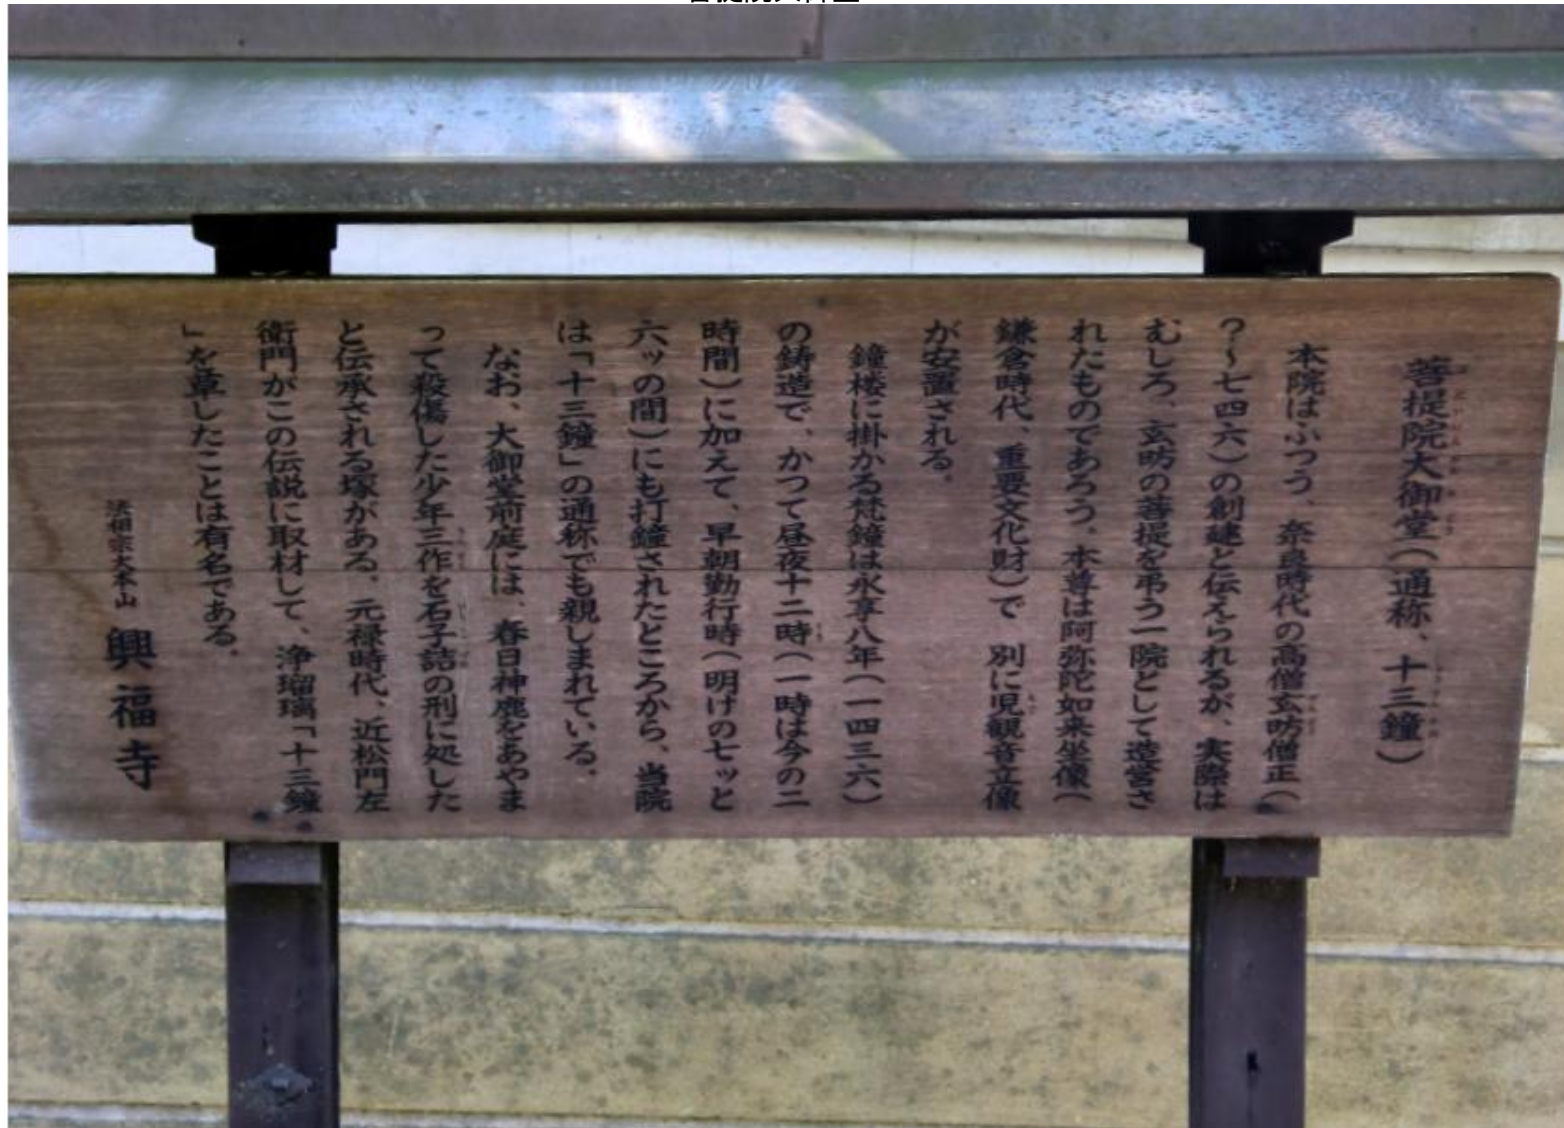 菩提院大御堂(通称、十三鐘)
本院はふつう、奈良時代の高僧玄昉僧正(
?~七四六)の創建と伝えられるが、実際は
むしろ、玄昉の菩提を弔う一院として造営さ
れたものであろう。本尊は阿弥陀如来坐像(
鎌倉時代、重要文化財)で 別に児観音立像
が安置される。
鐘楼に掛かる梵鐘は永享八年(一四三六)
の鋳造で、かつて昼夜十二時(一時は今の二
時間)に加えて、早朝勤行時(明けの七ッと
六ッの間)にも打鐘されたところから、当院
は「十三鐘」の通称でも親しまれている。
なお、大御堂前庭には、春日神鹿をあやま
って殺傷した少年三作を石子詰の刑に処した
と伝承される塚がある。元禄時代、近松門左
衛門がこの伝説に取材して、浄瑠璃「十三鐘
」を草したことは有名である。
法相宗大本山 興福寺